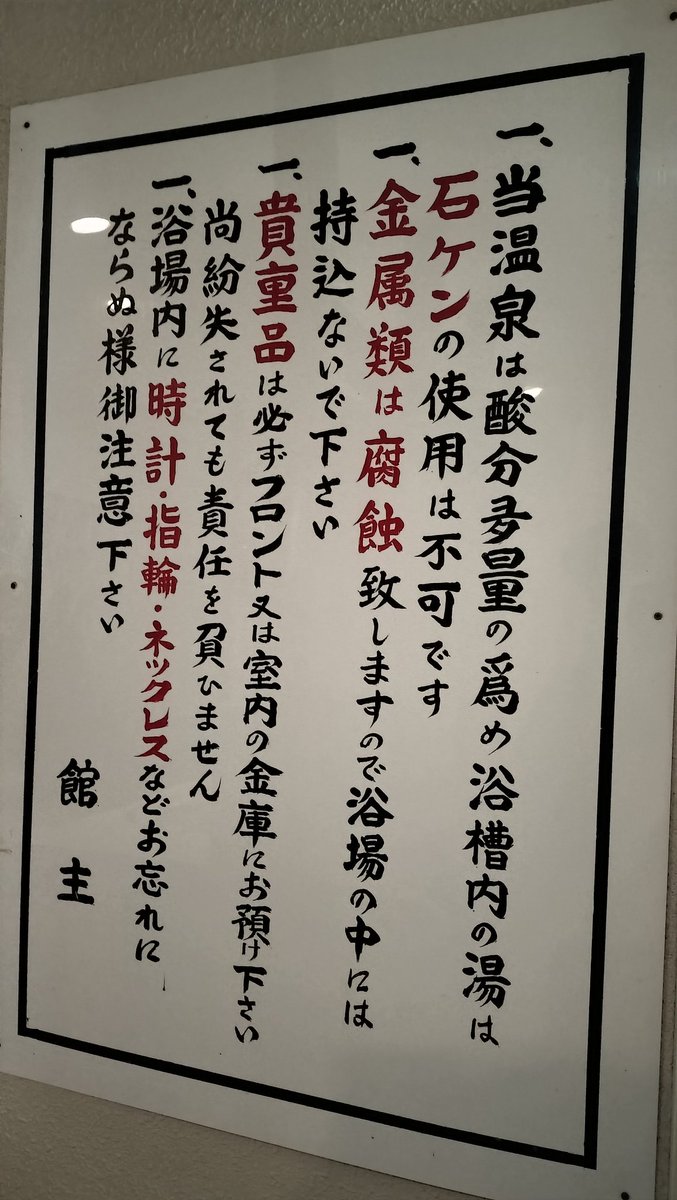 一、当温泉は酸分多量の爲め浴槽内の湯は
石ケンの使用は不可です
一、金属類は腐蝕致しますので浴場の中には
持込ないで下さい
一、貴重品は必ずフロント又は室内の金庫にお預け下さい
尚紛失されても責任を負ひません
一、浴場内に時計・指輪・ネックレスなどお忘れに
ならぬ様御注意下さい
館主